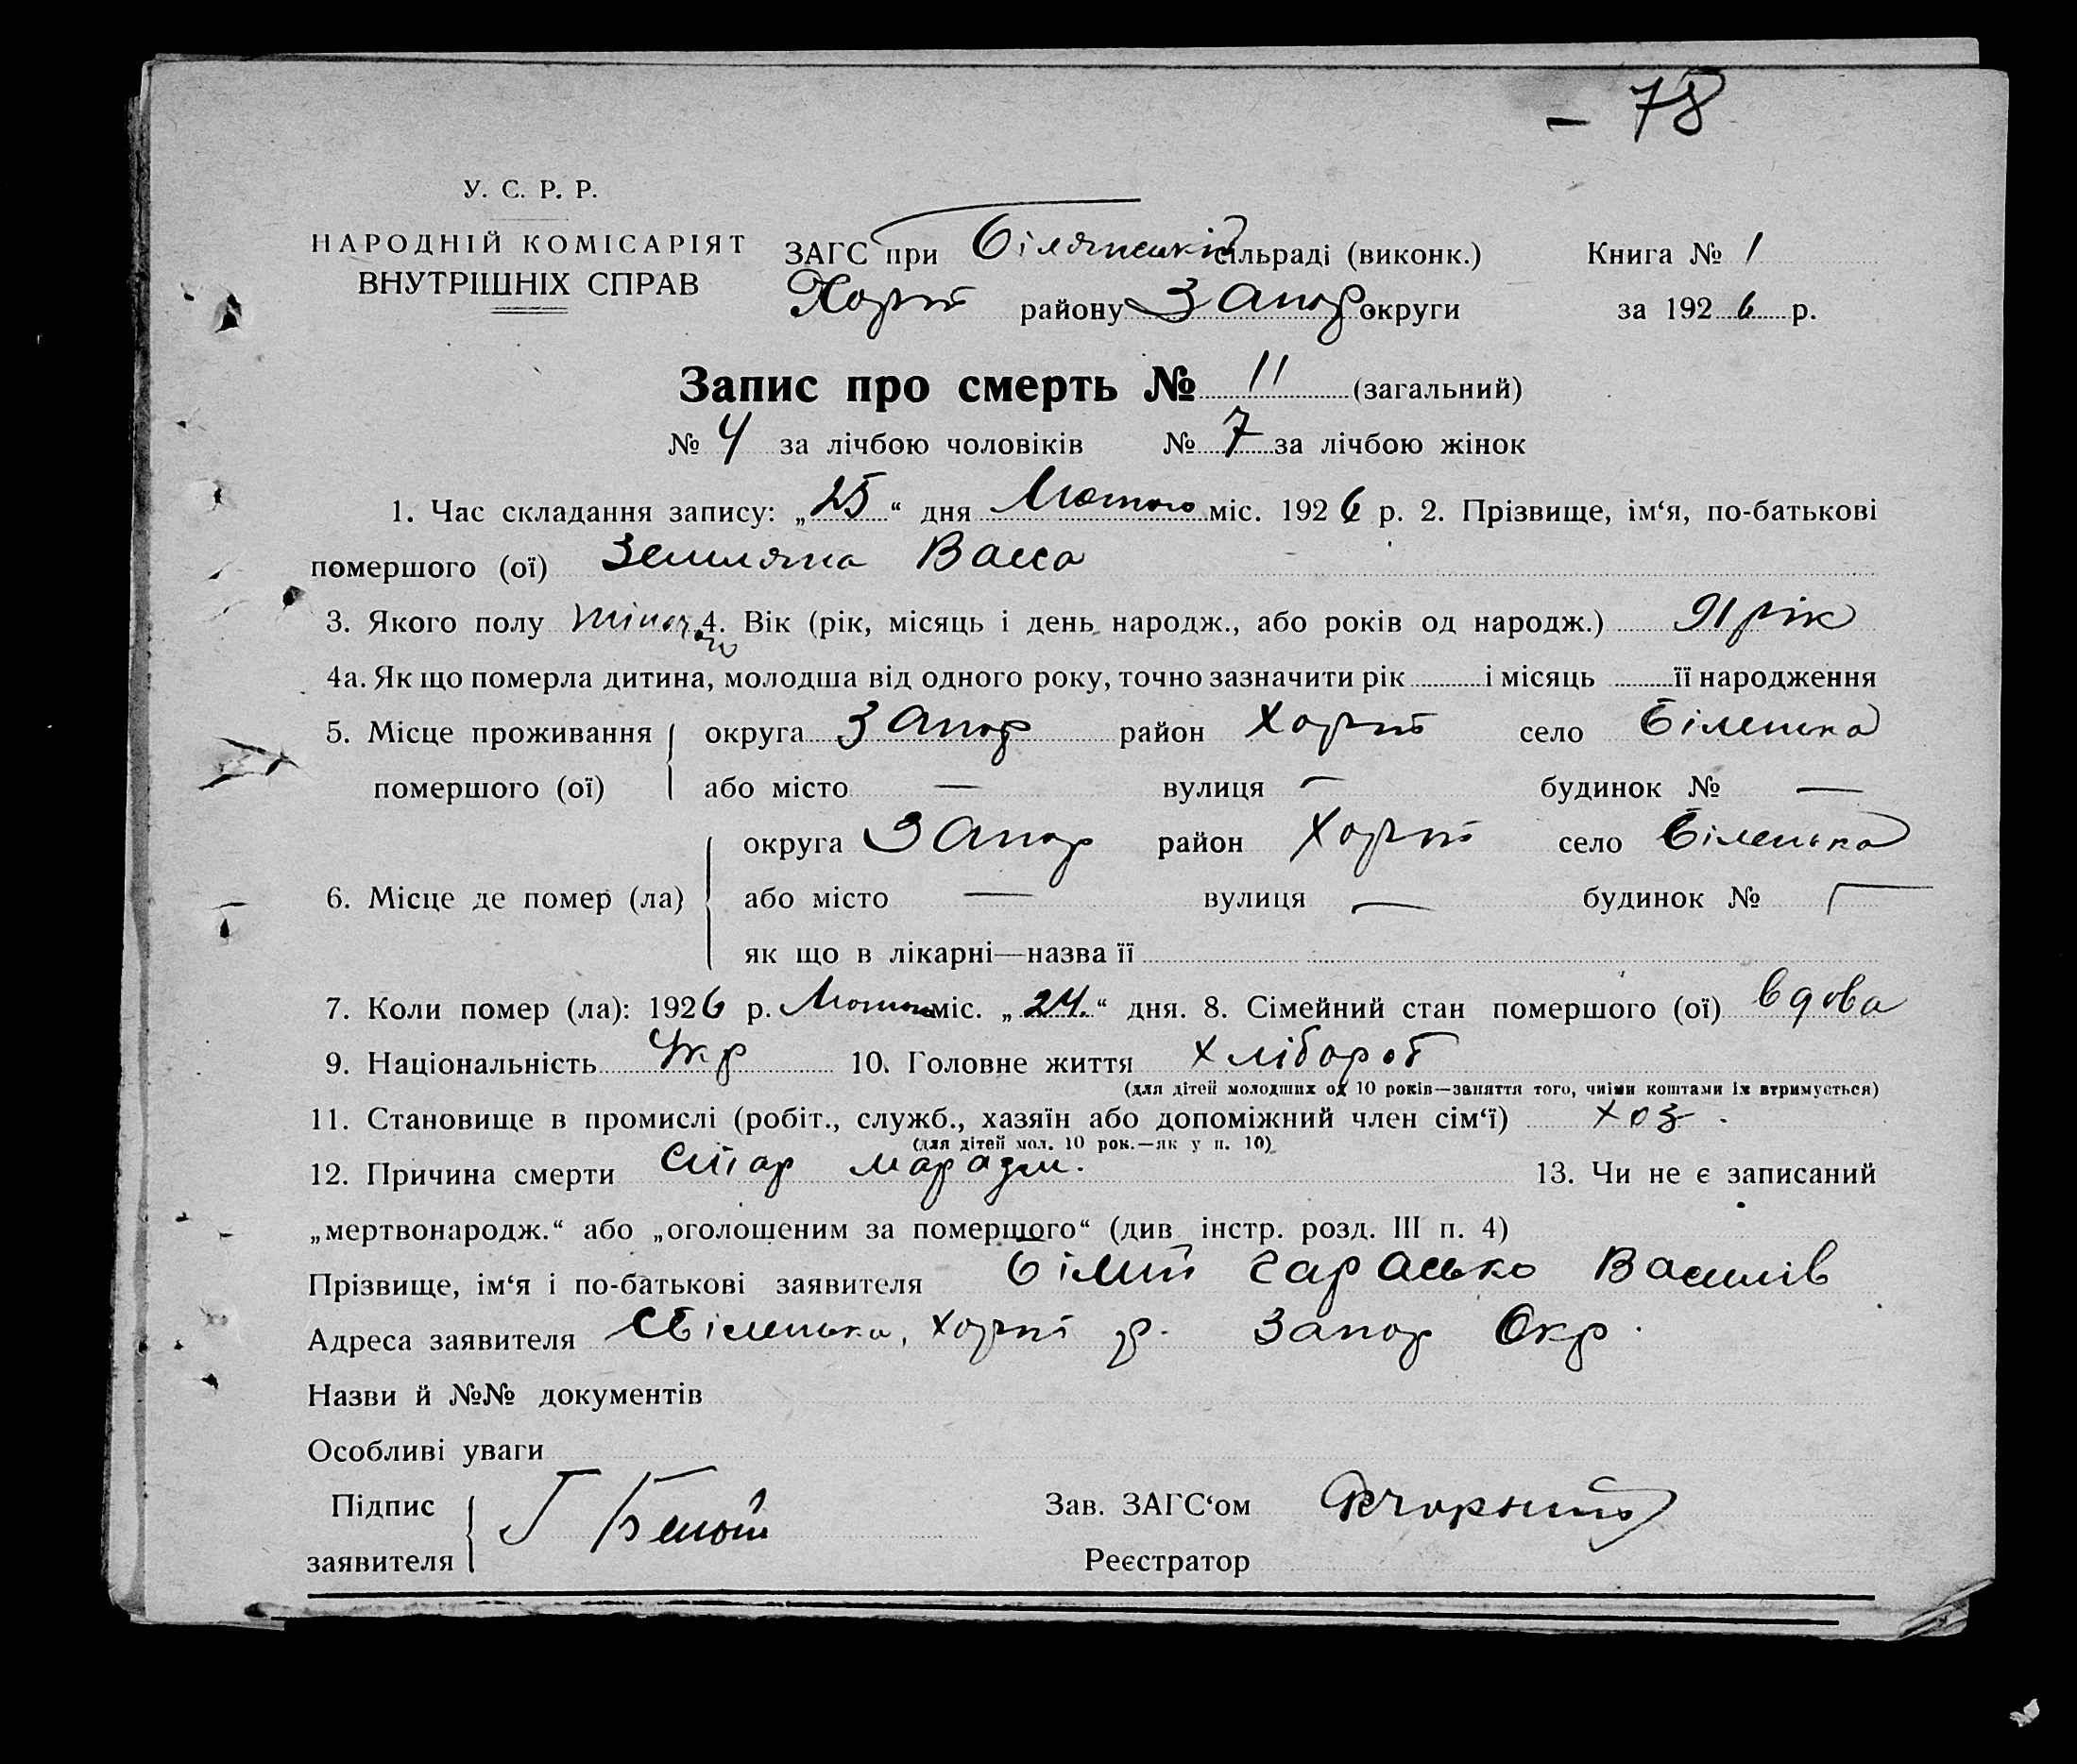 – 78
У. С. Р. Р.
НАРОДНІЙ КОМІСАРІЯТ
ВНУТРІШНІХ СПРАВ
ЗАГС при Білянській сільраді (виконк.) Книга № 1
Хорт району Запор округи за 1926 р.
Запис про смерть № 11 (загальний)
№ 4 за лічбою чоловіків № 7 за лічбою жінок
1. Час складання запису: „25“ дня Лютого міс. 1926 р. 2. Прізвище, ім‘я, по-батькові
помершого (ої) Земляна Васса
3. Якого полу жіноч 4. Вік (рік, місяць і день народж., або років од народж.) 91 рік
4а. Як що померла дитина, молодша від одного року, точно зазначити рік і місяць її народження
5. Місце проживання округа Запор район Хорт село Біленька
помершого (ої) або місто — вулиця — будинок № —
округа Запор район Хорт село Біленька
6. Місце де помер (ла) або місто — вулиця — будинок № —
як що в лікарні—назва її
7. Коли помер (ла): 1926 р. Лютого міс. „24.“ дня. 8. Сімейний стан помершого (ої) вдова
9. Національність Укр 10. Головне життя хлібороб
(для дітей молодших од 10 років—заняття того, чиїми коштами їх втримується)
11. Становище в промислі (робіт., служб., хазяїн або допоміжний член сім‘ї) хоз.
(для дітей мол. 10 рок.—як у п. 10)
12. Причина смерти Стар маразм. 13. Чи не є записаний
„мертвонародж.“ або „оголошеним за помершого“ (див інстр. розд. III п. 4)
Прізвище, ім‘я і по-батькові заявителя Білий Гарасько Василів
Адреса заявителя с Біленька, Хорт р. Запор Окр.
Назви й №№ документів
Особливі уваги
Підпис
заявителя Г Белой
Зав. ЗАГС‘ом
Реєстратор